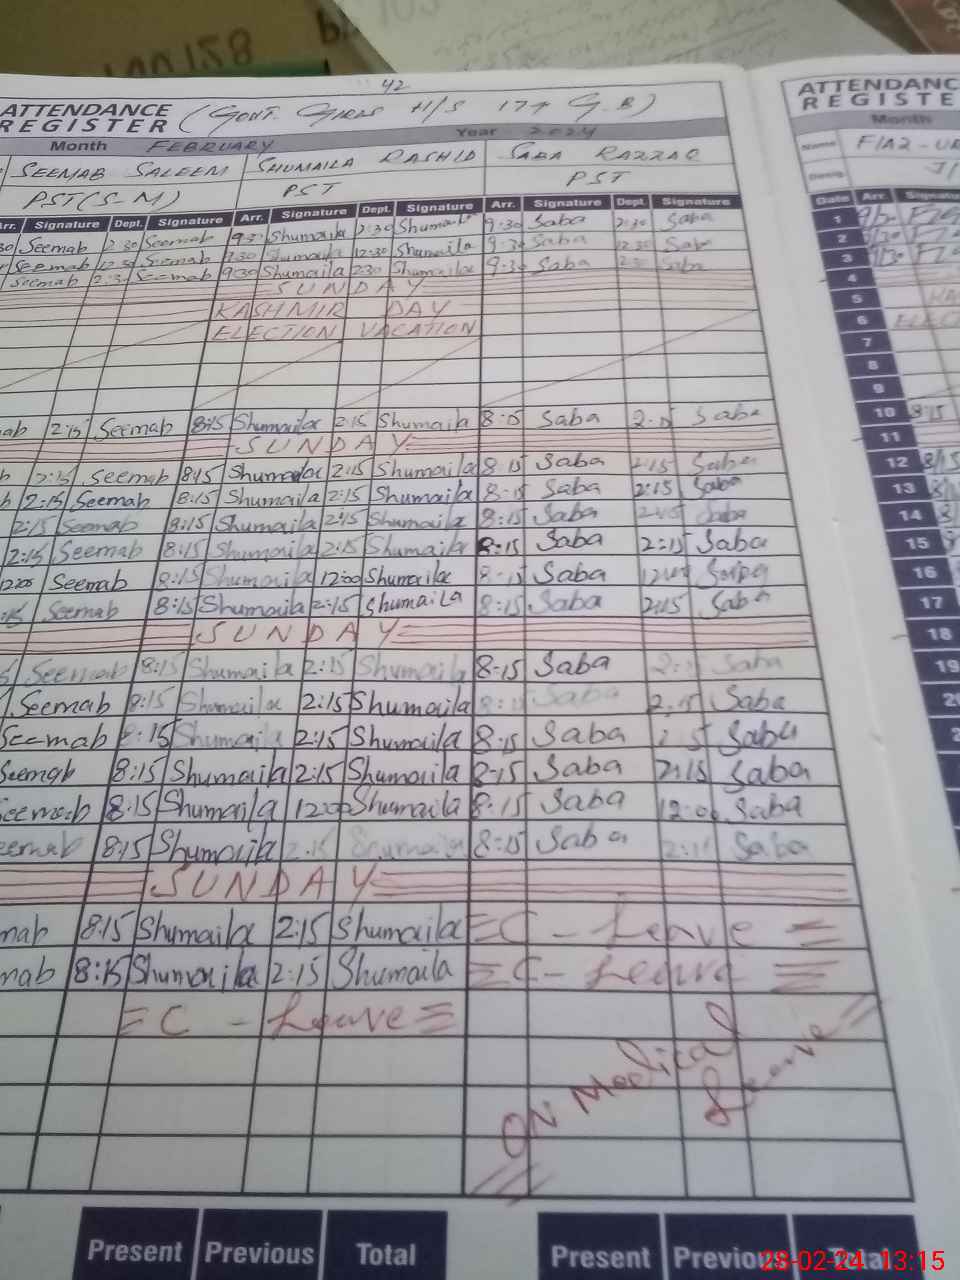 42
ATTENDANCE REGISTER (GOVT. GIRLS H/S 174 G.B)
Month FEBRUARY Year 2024
SEEMAB SALEEM SHUMAILA RASHID SABA RAZZAQ
PST(S-M) PST PST
Arr. Signature Dept. Signature Arr. Signature Dept. Signature Arr. Signature Dept. Signature
Seemab 2:30 Seemab 9:30 Shumaila 2:30 Shumaila 9:30 Saba 2:30 Saba
Seemab 12:30 Seemab 9:30 Shumaila 12:30 Shumaila 9:30 Saba 12:30 Saba
Seemab 2:30 Seemab 9:30 Shumaila 2:30 Shumaila 9:30 Saba 2:30 Saba
SUNDAY
KASHMIR DAY
ELECTION VACATION
ab 2:15 Seemab 8:15 Shumaila 2:15 Shumaila 8:15 Saba 2:15 Saba
SUNDAY
b 2:15 Seemab 8:15 Shumaila 2:15 Shumaila 8:15 Saba 2:15 Saba
b 2:15 Seemab 8:15 Shumaila 2:15 Shumaila 8:15 Saba 2:15 Saba
2:15 Seemab 8:15 Shumaila 2:15 Shumaila 8:15 Saba 2:15 Saba
2:15 Seemab 8:15 Shumaila 2:15 Shumaila 8:15 Saba 2:15 Saba
12:00 Seemab 8:15 Shumaila 12:00 Shumaila 8:15 Saba 12:00 Saba
:15 Seemab 8:15 Shumaila 2:15 Shumaila 8:15 Saba 2:15 Saba
SUNDAY
Seemab 8:15 Shumaila 2:15 Shumaila 8:15 Saba 2:15 Saba
Seemab 8:15 Shumaila 2:15 Shumaila 8:15 Saba 2:15 Saba
Seemab 8:15 Shumaila 2:15 Shumaila 8:15 Saba 2:15 Saba
Seemab 8:15 Shumaila 2:15 Shumaila 8:15 Saba 2:15 Saba
eemab 8:15 Shumaila 12:00 Shumaila 8:15 Saba 12:00 Saba
eemab 8:15 Shumaila 2:15 Shumaila 8:15 Saba 2:15 Saba
SUNDAY
mab 8:15 Shumaila 2:15 Shumaila C - Leave
mab 8:15 Shumaila 2:15 Shumaila C - Leave
C - Leave
ON Medical Leave
Present Previous Total Present Previous Total
ATTENDANC
REGISTE
Month
Name
Desig.
Date Arr. Signature
1
2
3
4
5
6
7
8
9
10 8:15
11
12 8:15
13
14
15
16
17
18
19
20
2
28-02-24 13:15